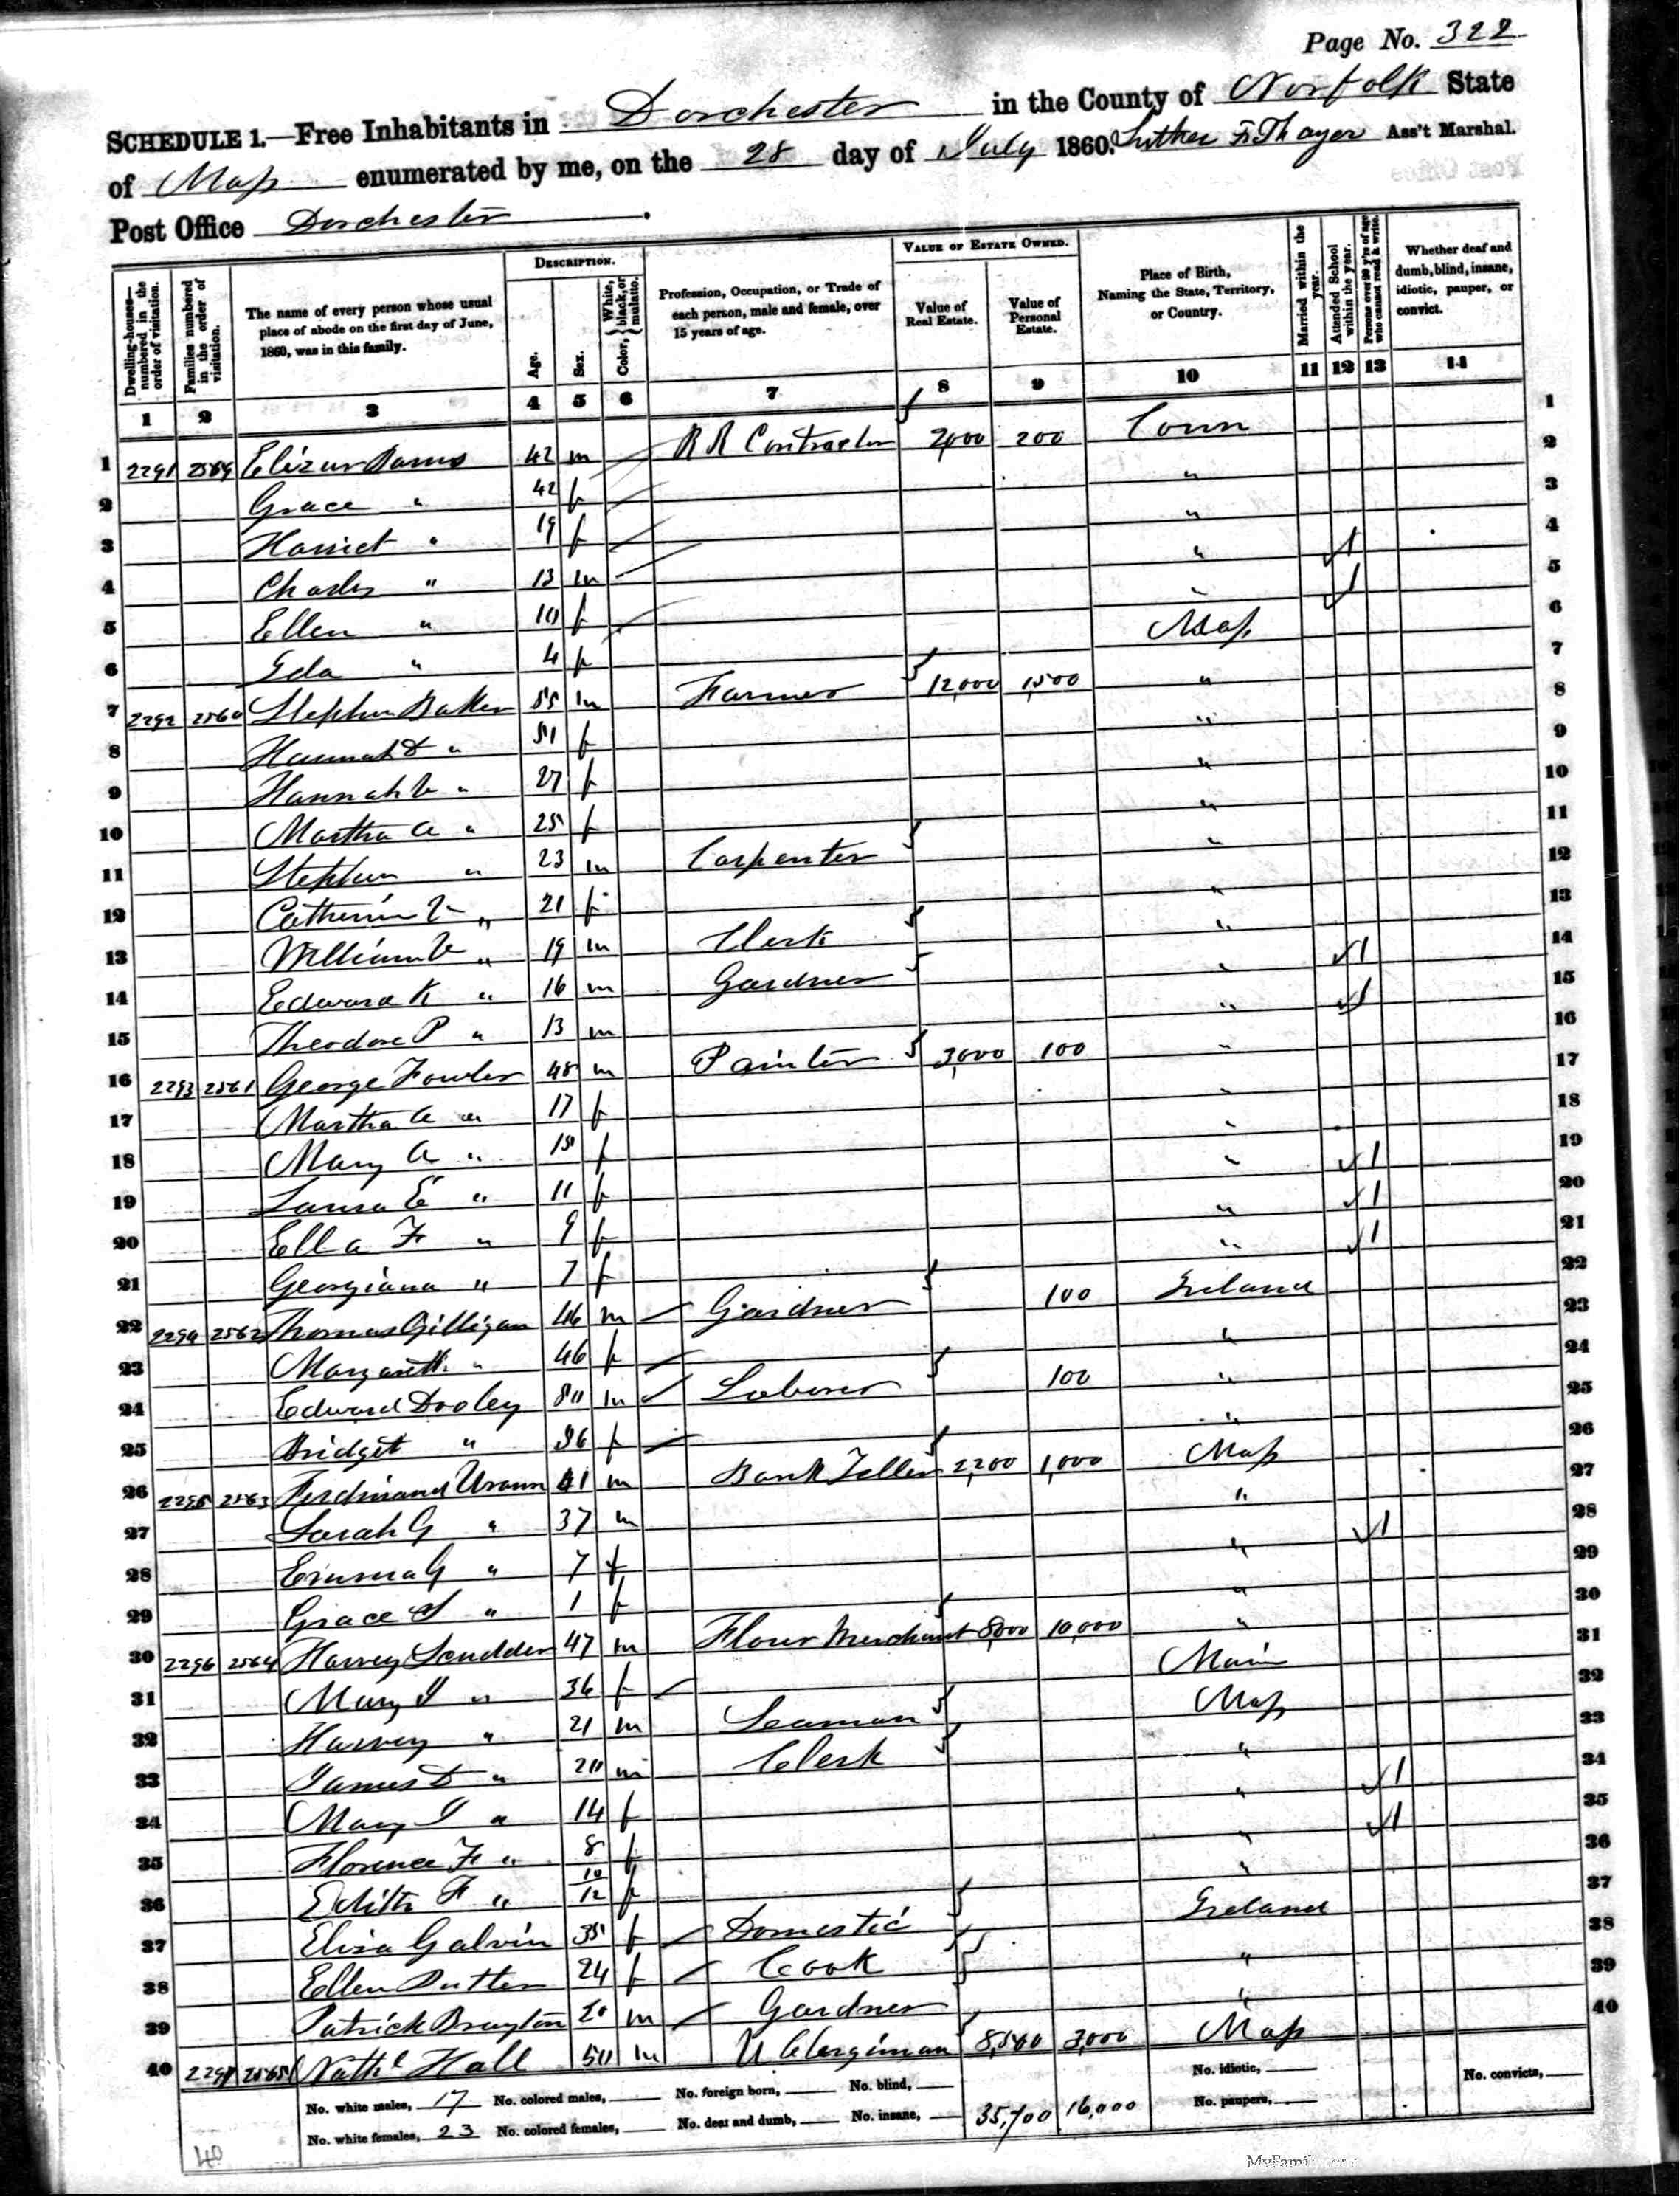 Page No. 322
SCHEDULE 1.—Free Inhabitants in Dorchester in the County of Norfolk State
of Mass enumerated by me, on the 28 day of July 1860. Luther F. Thayer Ass't Marshal.
Post Office Dorchester.
Dwelling-houses—numbered in the order of visitation.
Families numbered in the order of visitation.
The name of every person whose usual place of abode on the first day of June, 1860, was in this family.
DESCRIPTION.
Age.
Sex.
Color, {White, black, or mulatto.
Profession, Occupation, or Trade of each person, male and female, over 15 years of age.
VALUE OF ESTATE OWNED.
Value of Real Estate.
Value of Personal Estate.
Place of Birth, Naming the State, Territory, or Country.
Married within the year.
Attended School within the year.
Persons over 20 y'rs of age who cannot read & write.
Whether deaf and dumb, blind, insane, idiotic, pauper, or convict.
1 2 3 4 5 6 7 8 9 10 11 12 13 14
1 2291 2559 Elizur 42 m R R Contractor 2,000 200 Conn 1
2 Grace " 42 f " 2
3 Harriet " 19 f " 3
4 Charles " 13 m " 1 4
5 Ellen " 10 f " 1 5
6 " 4 f Mass 6
7 2292 2560 Stephen Baker 55 m Farmer 12,000 1,500 " 7
8 Hannah " 51 f " 8
9 Hannah " 27 f " 9
10 Martha A " 25 f " 10
11 Stephen " 23 m Carpenter " 11
12 " 21 f " 12
13 William " 19 m Clerk " 13
14 Edward K " 16 m Gardner " 1 14
15 Theodore P " 13 m " 1 15
16 2293 2561 George Fowler 48 m Painter 3,000 100 " 16
17 Martha A " 17 f " 17
18 Mary A " 15 f " 18
19 Laura E " 11 f " 1 19
20 Ella F " 9 f " 1 20
21 Georgiana " 7 f " 1 21
22 2294 2562 Thomas Gilligan 46 m Gardner 100 Ireland 22
23 Margarett " 46 f " 23
24 Edward Dooley m Laborer 100 " 24
25 Bridget " f " 25
26 2295 2563 Ferdinand Urann 41 m Bank Teller 2,200 1,000 Mass 26
27 Sarah G " 37 m " 27
28 Emma G " 7 f " 1 28
29 Grace " 1 f " 29
30 2296 2564 Harvey Scudder 47 m Flour Merchant 8,000 10,000 " 30
31 Mary " 36 f Main 31
32 Harvey " 21 m Seaman Mass 32
33 James " 20 m Clerk " 33
34 Mary " 14 f " 1 34
35 Florence F " 8 f " 1 35
36 Edith F " 10/12 f " 36
37 Eliza Galvin 35 f Domestic Ireland 37
38 Ellen 24 f Cook " 38
39 Patrick Brayton m Gardner " 39
40 2297 2565 Nathl Hall 50 m U Clergiman 8,500 3,000 Mass 40
No. white males, 17 No. colored males, No. foreign born, No. blind, No. idiotic, No. convicts,
No. white females, 23 No. colored females, No. deaf and dumb, No. insane, 35,700 16,000 No. paupers,
40